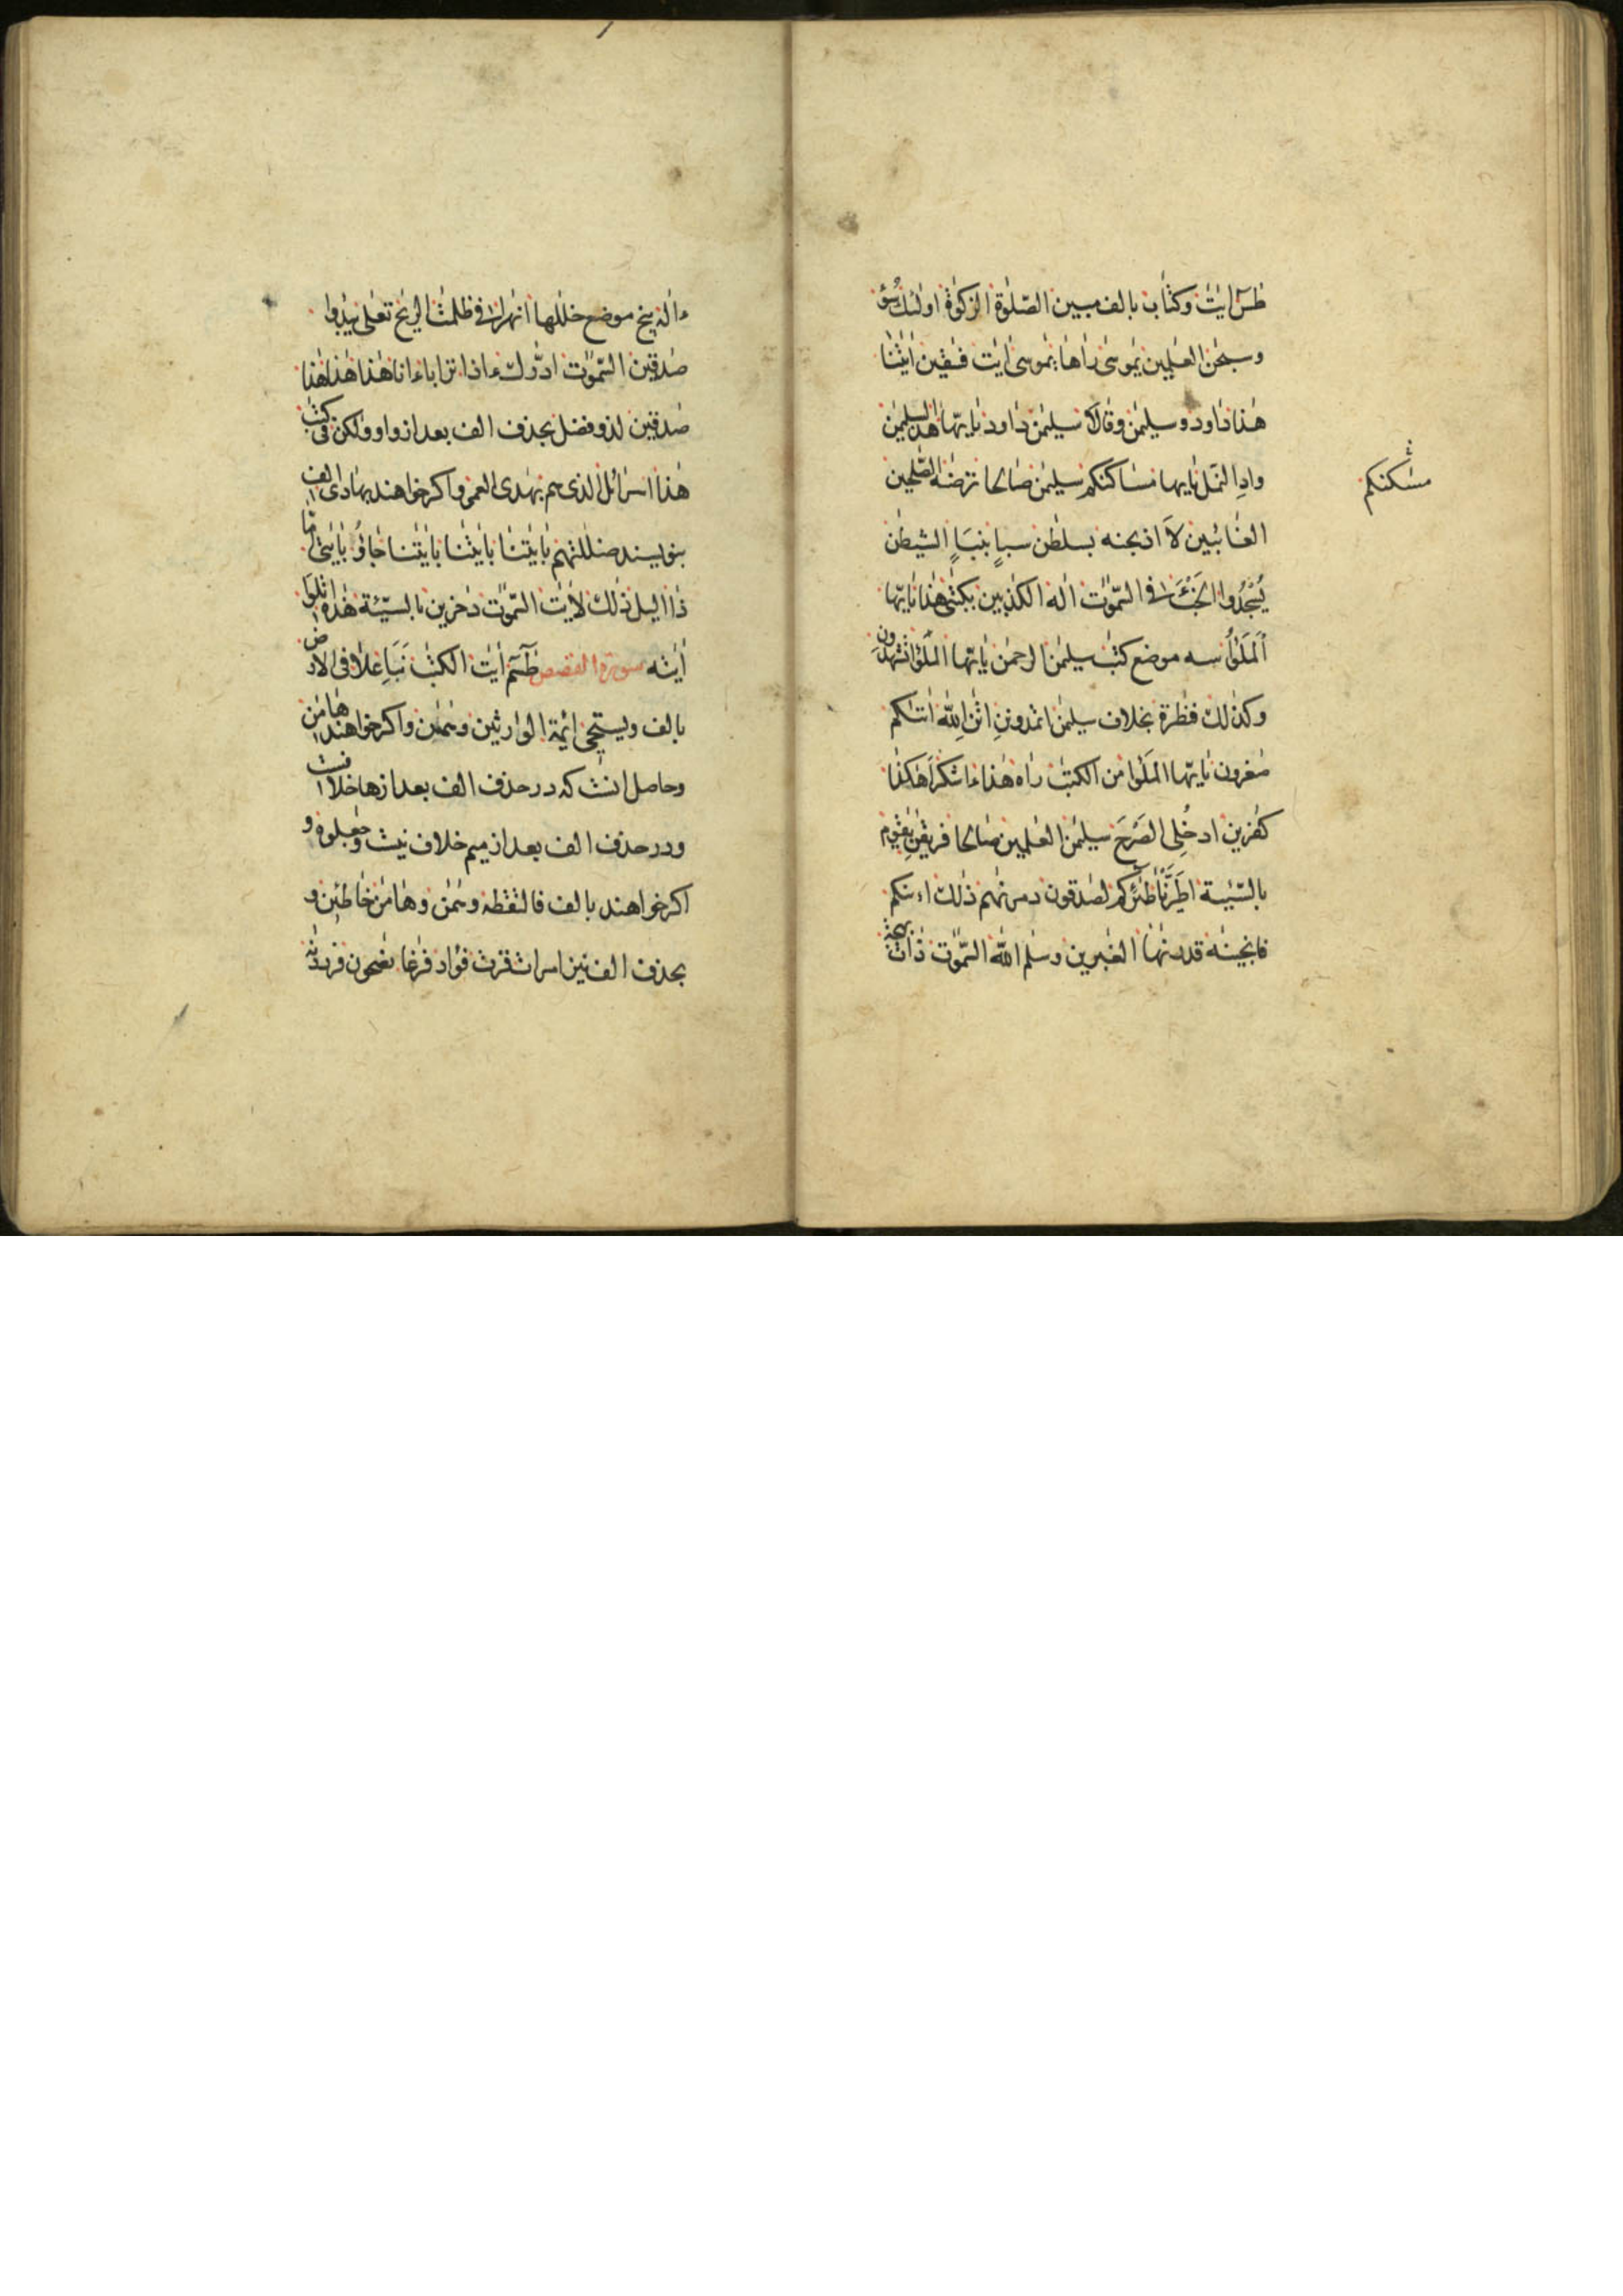 طٰسٓ اٰيٰتُ وكتاب بالف مبين الصّلوٰة الزكوٰة اولئك سُوٓءُ
وسبحٰن العٰلمين يٰموسىٰ رٰاها يٰموسىٰ اٰيٰت فٰسقين اٰيٰتنا
هٰذا داود وسليمٰن وقالا سليمٰن داود يٰايّها لهذا سليمٰن
وادِ النّمل يٰايها مساكنكم سليمٰن صٰالحا ترضٰه الصّٰلحين
مسٰكنكم
الغائبين لاَ اذبحنه بسلطٰن سباٍ بنباٍ الشيطٰن
يَسْجُدُوا الخَبْءَ فى السّمٰوٰت اله الكٰذبين بكتٰبى هٰذا يٰايّها
اَلْمَلَؤُا سه موضع كتٰب سليمٰن الرحمٰن يٰايّها الملَؤا تشهدونِ
وكذٰلك فنٰظرة بخلاف سليمٰن اتمدوننِ اٰتٰنِ اللّٰه اٰتٰىكم
صٰغرون يٰايّها الملَؤا من الكتٰب راٰه هٰذا ءاشكر اهٰكذا
كٰفرين ادخُلِى الصَّرْحَ سليمٰن العٰلمين صٰالحا فريقٰنِ يٰقومِ
بالسّيّئة اطَّيَّرْنَا طٰئركم لصٰدقون دمرنٰهم ذٰلك اءنكم
فانجينٰه قدرنٰها الغٰبرين وسلٰم اللّٰه السّمٰوٰت ذات بهجة
ءاله پنج موضع خلٰلها انهٰرا فى ظلمٰت الريٰح تعٰلى يبدؤا
صٰدقين السّمٰوٰت ادّٰرك ءاذا ترابا ءاباؤنا هٰذا هٰذا
صٰدقين لذو فضل بحذف الف بعد از واو ولكن فى كتٰب
هٰذا اسرائل الذى هم بهٰدى العمى واكر خواهند بهادى الف
بنويسند ضلٰلتهم باٰيٰتنا باٰيٰتنا باٰيٰتنا جاؤُ باٰيٰتى امّا
ذا اليل ذٰلك لاٰيٰت السّمٰوٰت دٰخرين بالسيّئة هٰذه اتلوَا
اٰيٰته سورة القصص طٰسٓمٓ اٰيٰت الكتٰب نَبَاِ عَلَا فى الارض
بالف ويستحى ائمة الوارثين وهٰمٰن واكر خواهند هامٰن
وحاصل انست كه در حذف الف بعد از ها خلافست
ودر حذف الف بعد از ميم خلاف نيست وجٰعلوه و
اكر خواهند بالف فالتقطه وهٰمٰن وهامٰن خاطئين و
بحذف الف نيز امرات قرت فؤاد فٰرغا نٰصحون فرددنٰه